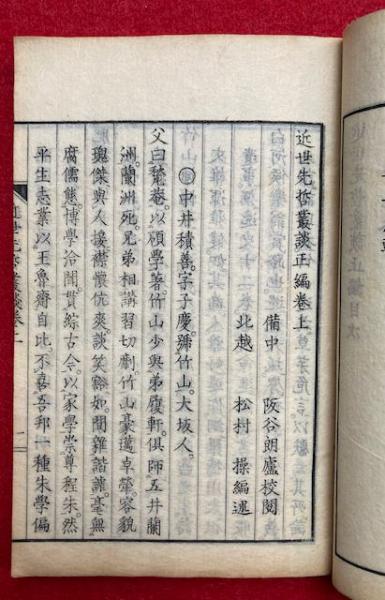 近世先哲叢談正編卷上
備中　阪谷朗廬校閱
北越　松村　操編述
中井積善。字子慶。號竹山。大坂人。
父曰甃庵。以碩學著。竹山少與弟履軒。俱師五井蘭
洲。蘭洲死。兄弟相講習切劘。竹山豪邁卓犖。容貌
瑰傑。與人接。襟懷伉爽。談笑豁如。間雜諧謔。毫無
腐儒態。博學洽聞。貫綜古今。以家學崇尊程朱。然
平生志業。以王魯齋自比。不喜吾邦一種朱學偏